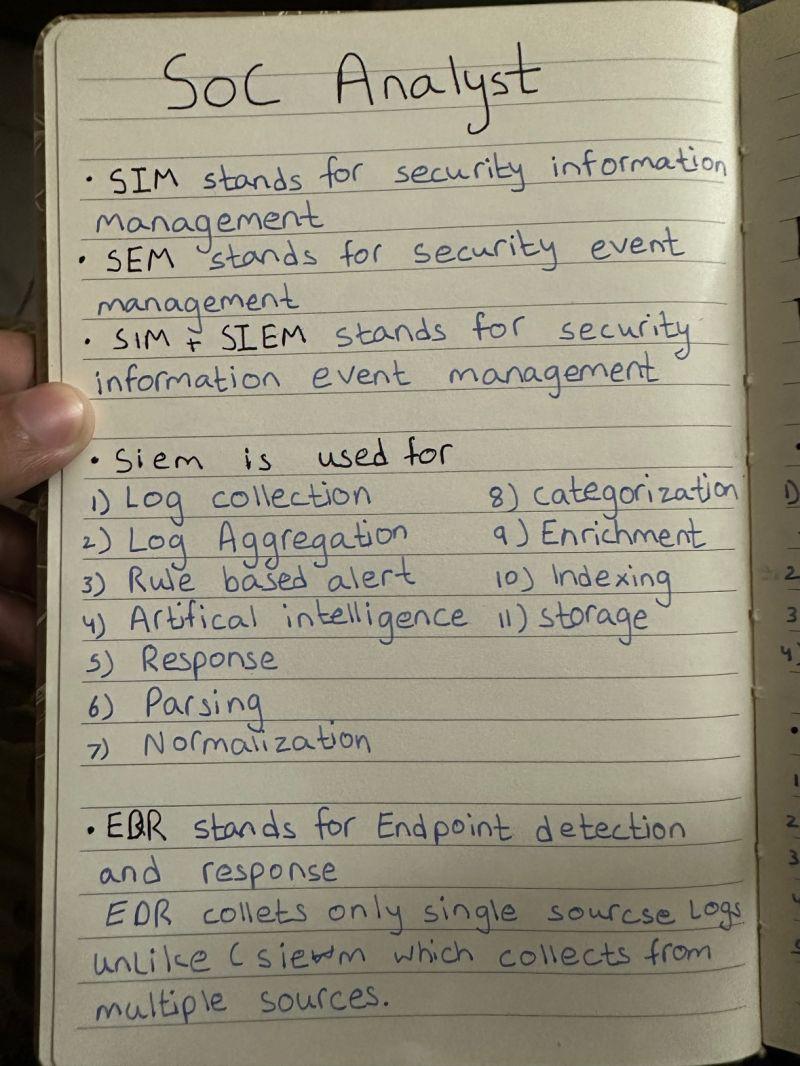 SOC Analyst
• SIM stands for security information
management
• SEM stands for security event
management
• SIM + SIEM stands for security
information event management
• Siem is used for
1) Log collection
2) Log Aggregation
3) Rule based alert
4) Artifical intelligence
5) Response
6) Parsing
7) Normalization
8) categorization
9) Enrichment
10) Indexing
11) storage
• EDR stands for Endpoint detection
and response
EDR collets only single sourcse Logs
unlike ( siem which collects from
multiple sources.
1)
2
3
4)
•
1
2
3